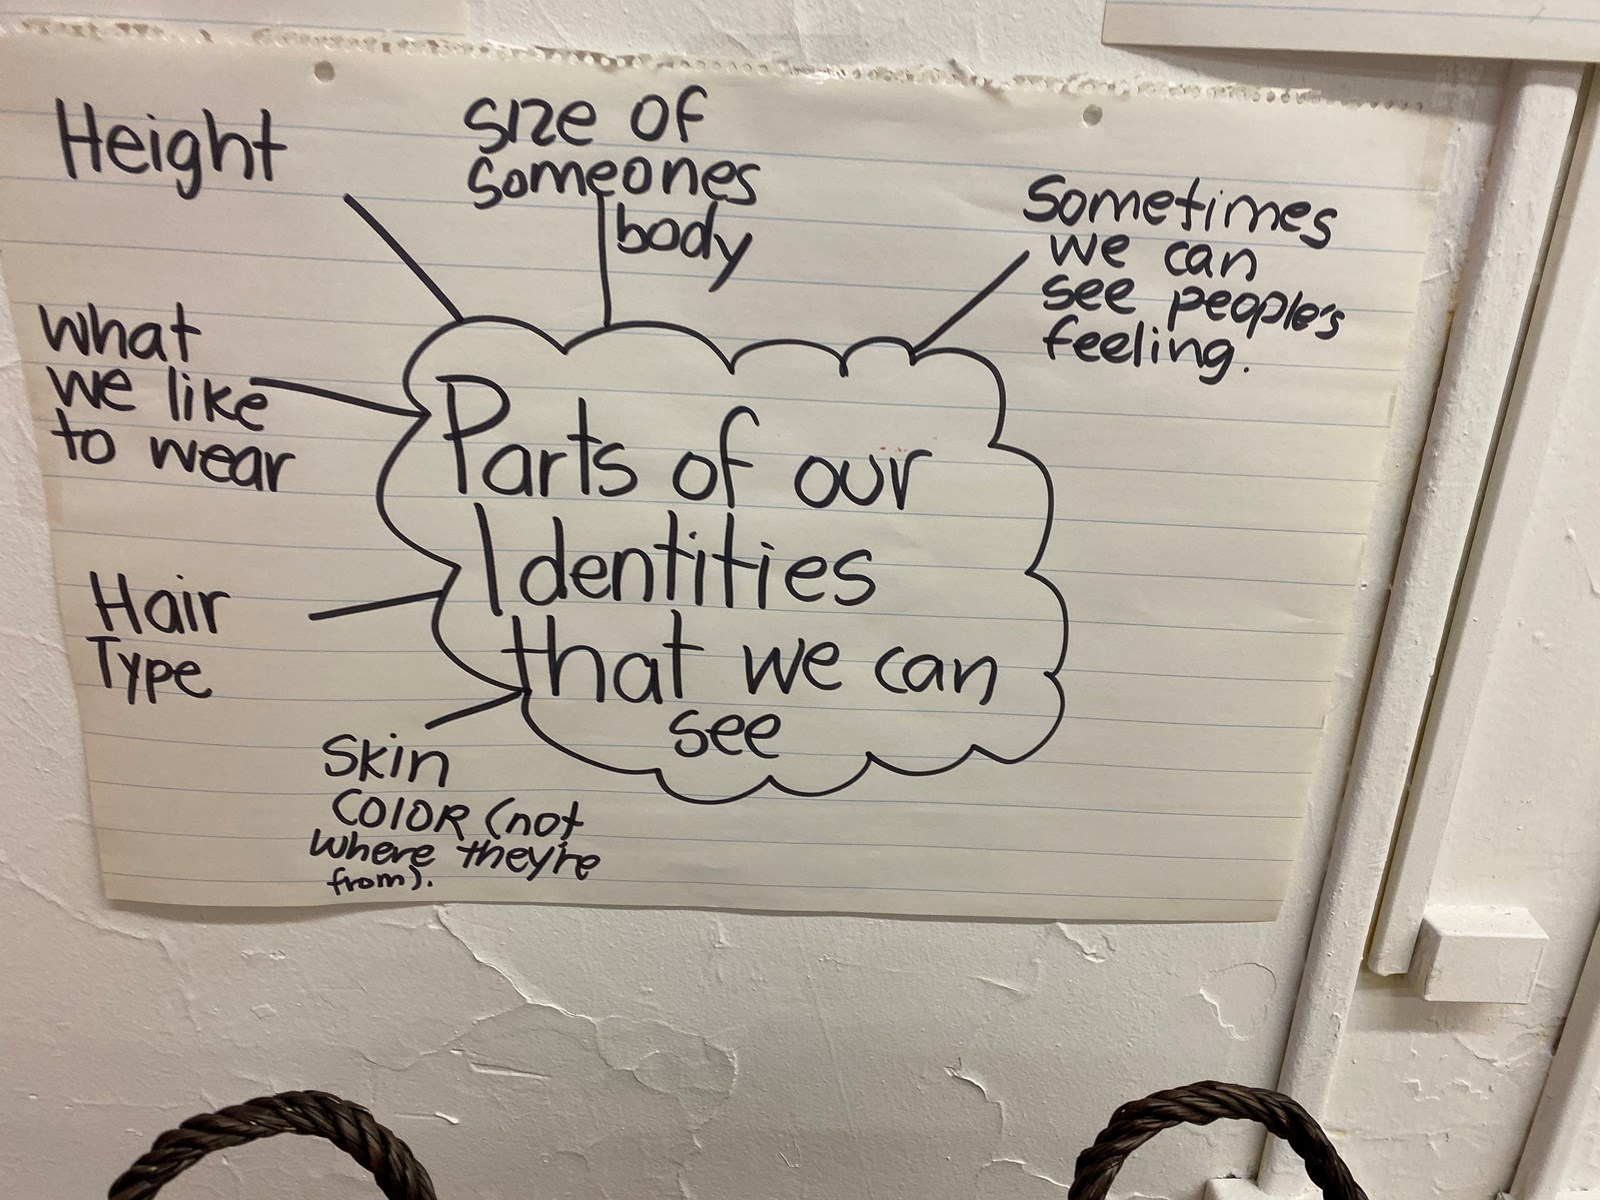 Height
size of
someones
body
Sometimes
we can
see people's
feeling.
what
we like
to wear
Parts of our
Identities
that we can
see
Hair
Type
Skin
COlOR (not
where they're
from).